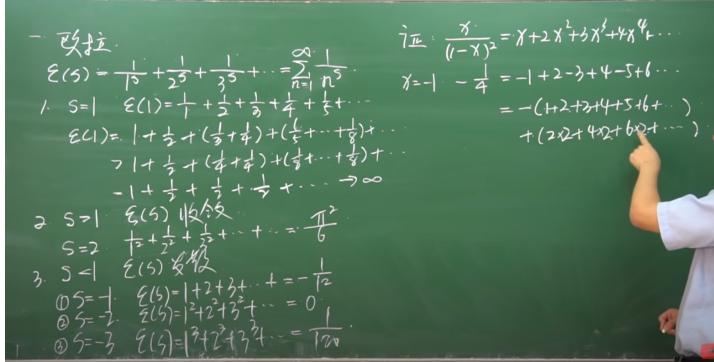 一 欧拉.
ξ(s)= 1/1^s + 1/2^s + 1/3^s + ··· = ∑_{n=1}^{∞} 1/n^s
1. s=1 ξ(1)= 1/1 + 1/2 + 1/3 + 1/4 + 1/5 + ···
ξ(1)= 1 + 1/2 + (1/3 + 1/4) + (1/5 + ··· + 1/8) + ···
> 1 + 1/2 + (1/4 + 1/4) + (1/8 + ··· + 1/8) + ···
= 1 + 1/2 + 1/2 + 1/2 + ··· → ∞
2 s>1 ξ(s) 收敛
s=2 1/1^2 + 1/2^2 + 1/3^2 + ·· + ·· = π^2/6
3. s<1 ξ(s) 发散
① s=-1. ξ(s)=1+2+3+··· + = -1/12
② s=-2. ξ(s)=1^2+2^2+3^2+··· = 0.
③ s=-3 ξ(s)=1^3+2^3+3^3+··· = 1/120.
证: x/(1-x)^2 = x+2x^2+3x^3+4x^4+···
x=-1 -1/4 = -1+2-3+4-5+6···
= -(1+2+3+4+5+6+···)
+(2×2+4×2+6×2+···)